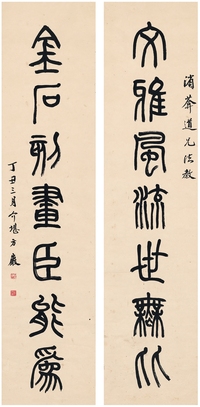 文雅風流世無比
消莽道兄法教
金石刻畫臣能為
丁丑三月介堪方巖